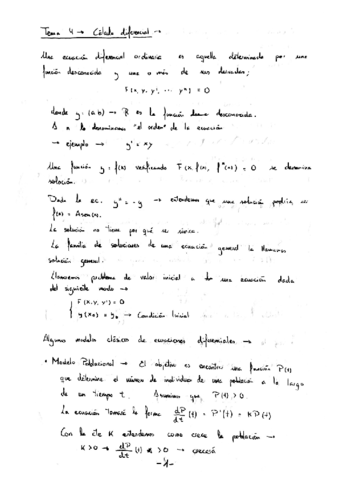 Tema 4 → Cálculo diferencial →
Una ecuación diferencial ordinaria es aquella determinada por una
función desconocida y una o más de sus derivadas;
F(x, y, y', ... yⁿ) = 0
donde y: (a,b) → R es la función desconocida.
A n lo denominamos "el orden" de la ecuación
→ ejemplo → y' = xy
Una función y = f(x) verificando F(x, f(x), fⁿ(x)) = 0 se denomina
solución.
Dada la ec. y'' = -y → entendemos que una solución podría ser
f(x) = Asen(x).
La solución no tiene por qué ser única.
La familia de soluciones de una ecuación general la llamamos
solución general.
Llamaremos problema de valor inicial a una ecuación dada
del siguiente modo →
F(x, y, y') = 0
y(x₀) = y₀ → Condición Inicial
Algunos modelos clásicos de ecuaciones diferenciales →
• Modelo Poblacional → El objetivo es encontrar una función P(t)
que determine el número de individuos de una población a lo largo
de un tiempo t. Asumimos que P(t) > 0.
La ecuación tomará la forma dP/dt (t) = P'(t) = KP(t)
Con la cte K entendemos como crece la población →
K > 0 → dP/dt (t) > 0 → crecerá
-1-